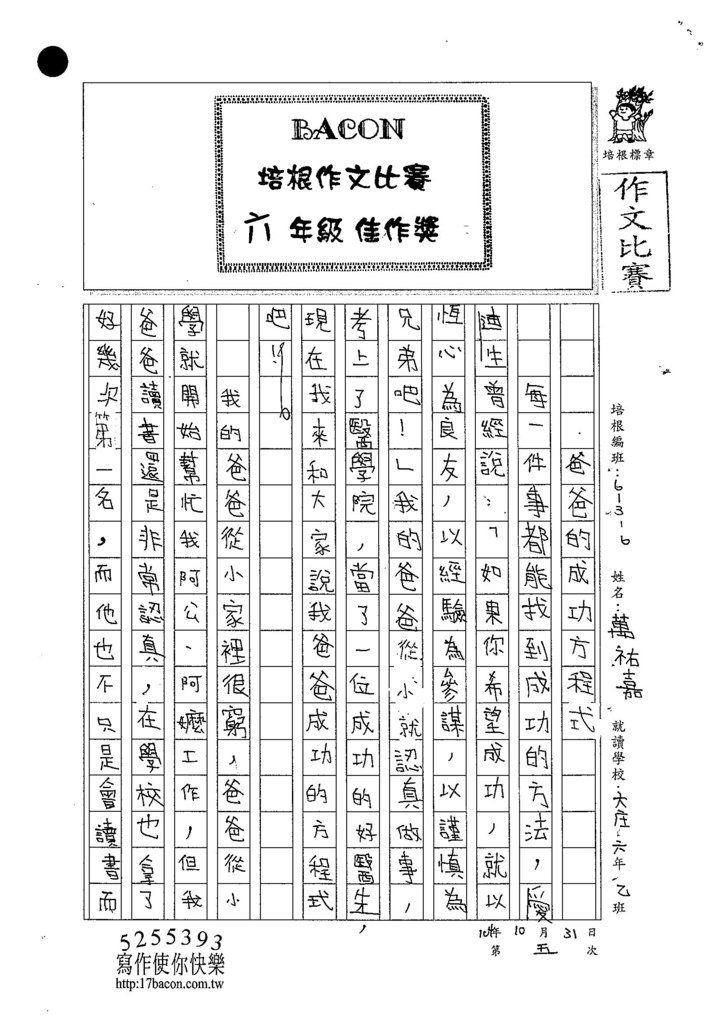 BACON
培根作文比賽
六年級佳作獎
培根標章
作文比賽
培根編班：6-13-6 姓名：萬祐嘉 就讀學校：大庄：六年乙班
104年10月31日
第五次
爸爸的成功方程式
每一件事都能找到成功的方法，愛
迪生曾經說：「如東你希望成功，就以
恆心為良友，以經驗為參謀，以謹慎為
兄弟吧！」我的爸爸從小就認真做事，
考上了醫學院，當了一位成功的好醫生，
現在我來和大家說我爸爸成功的方程式
吧！
我的爸爸從小家裡很窮，爸爸從小
學就開始幫忙我阿公、阿嬤工作，但我
爸爸讀書還是非常認真，在學校也拿了
好幾次第一名，而他也不只是會讀書而
5255393
寫作使你快樂
http:17bacon.com.tw